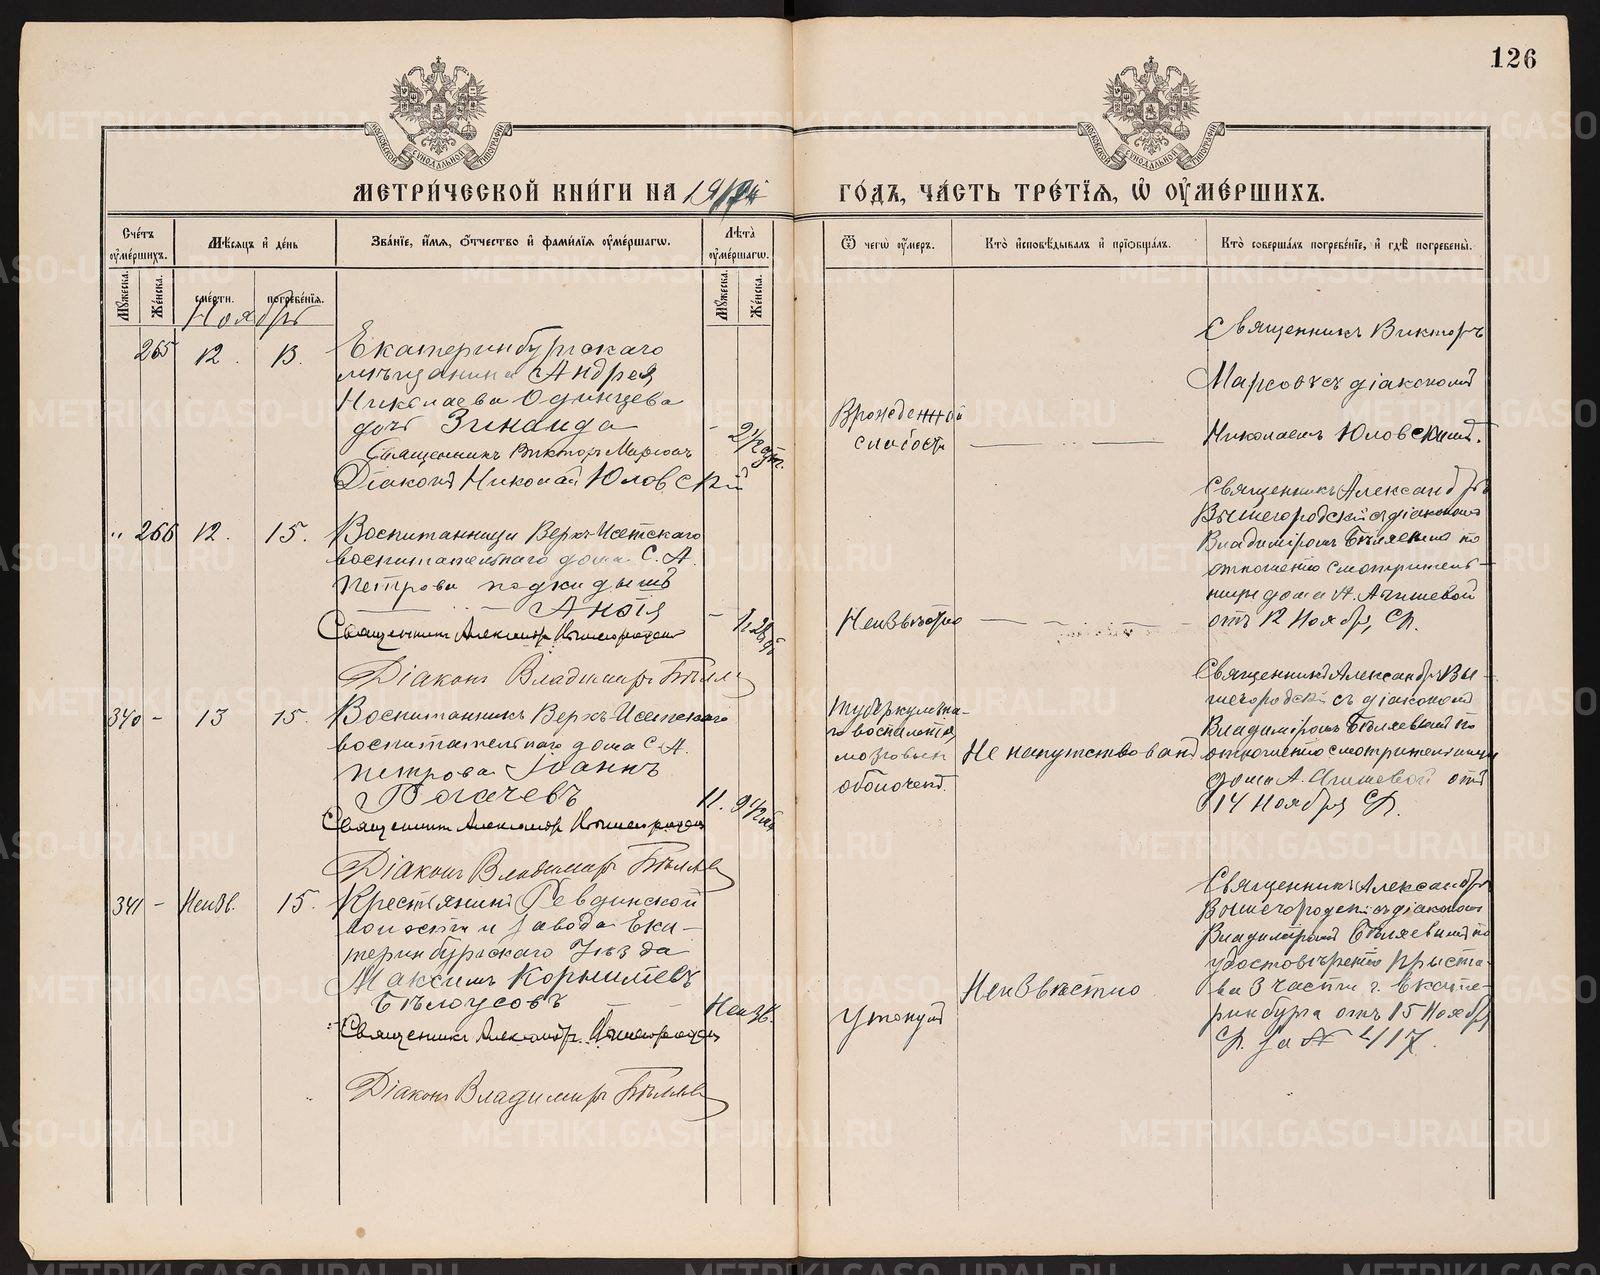 126
МЕТРИЧЕСКОЙ КНИГИ НА
ГОДЪ, ЧАСТЬ ТРЕТІЯ, Ѽ ОУМЕРШИХЪ.
Счетъ оумершихъ.
Мужеска.
Женска.
Мѣсяцъ и день
смерти.
погребенія.
Званіе, имя, отчество и фамилія оумершагѡ.
Лѣта оумершагѡ.
Мужеска.
Женска.
Ѿ чегѡ оумеръ.
Кто исповѣдывалъ и пріобщалъ.
Кто совершалъ погребеніе, и гдѣ погребены.
Ноябрь
265
12.
13.
Екатеринбургскаго
мѣщанина Андрея
Николаева Одинцева
дочь Зинаида
Священникъ Викторъ
Діаконъ Николай Юловскій
Врожденной
слабости
Священникъ Викторъ
Марсовъ съ діакономъ
Николаемъ Юловскимъ.
" 266
12.
15.
Воспитанница Верхъ-Исетскаго
воспитательнаго дома С. А.
Петрова подкидышъ
Анна
Священникъ Александръ Вышегородскій
Діаконъ Владимиръ Бѣляевъ
Неизвѣстно
Священникъ Александръ
Вышегородскій съ діакономъ
Владиміромъ Бѣляевымъ по
отношенію смотритель-
ницы дома А.
отъ 12 Ноября, Ср.
340 -
13
15.
Воспитанникъ Верхъ-Исетскаго
воспитательнаго дома С. А.
Петрова Іоаннъ
Богачевъ
Священникъ Александръ Вышегородскій
Діаконъ Владимиръ Бѣляевъ
Туберкулезна-
го воспаленія
мозговыхъ
оболочекъ.
Не напутствованъ
Священникъ Александръ Вы-
шегородскій съ діакономъ
Владиміромъ Бѣляевымъ по
отношенію смотрительницы
дома А. отъ
14 Ноября Ср.
341 -
Неизв.
15.
Крестьянинъ Ревдинской
волости и завода Ека-
теринбургскаго Уѣзда
Максимъ Корниліевъ
Бѣлоусовъ
Неизв.
Священникъ Александръ Вышегородскій
Діаконъ Владимиръ Бѣляевъ
Утонулъ
Неизвѣстно
Священникъ Александръ
Вышегородскій съ діакономъ
Владиміромъ Бѣляевымъ по
удостовѣренію Приста-
ва 3 части г. Екате-
ринбурга отъ 15 Ноября
Ср. за № 417.